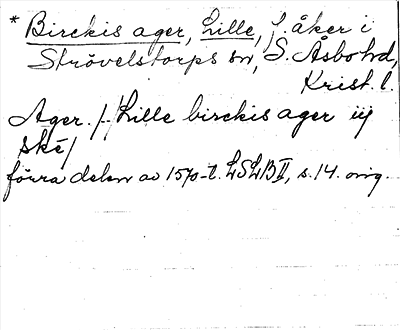 * Birckis ager, Lille, f. åker i
Strövelstorps sn, S. Åsbo hd,
Krist. l.
Ager. /-/ Lille birckis ager iij
ské/
förra delen av 1570-t. LSLB II, s. 14. orig.